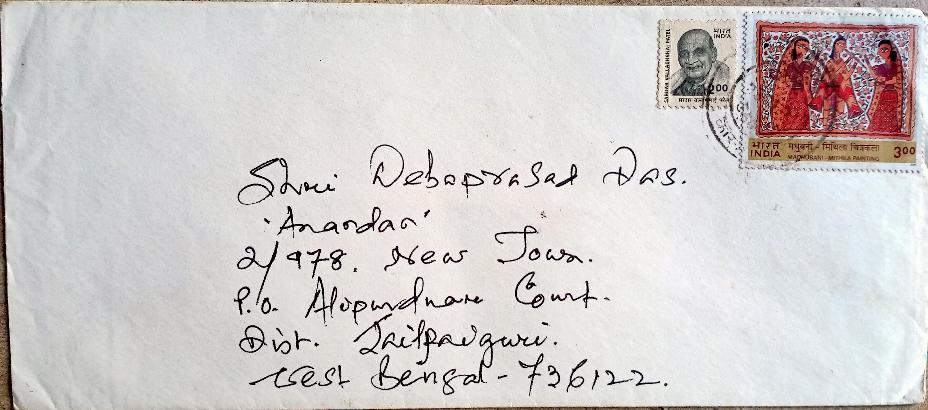 भारत
INDIA
SARDAR VALLABHBHAI PATEL
2.00
सरदार वल्लभभाई पटेल
भारत
INDIA
मधुबनी - मिथिला चित्रकला
MADHUBANI - MITHILA PAINTING
3.00
Shri Debaprasad Das.
'Anandan'
2/978, New Town.
P.O. Alipurduar Court.
Dist. Jailpaiguri.
West Bengal - 736122.